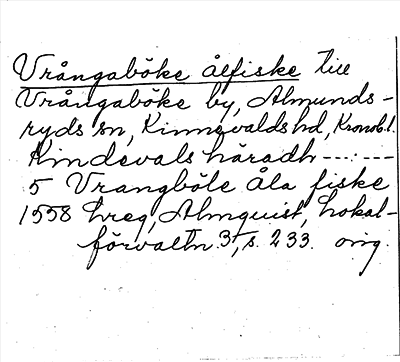 Vrångaböke ålfiske till
Vrångaböke by, Almunds-
ryds sn, Kinnevalds hd, Kronob.l.
Kindevals häradh -------
5 Vrangböle Åla fiske
1558 hreg, Almquist, Lokal-
förvaltn. 3, s. 233. orig.